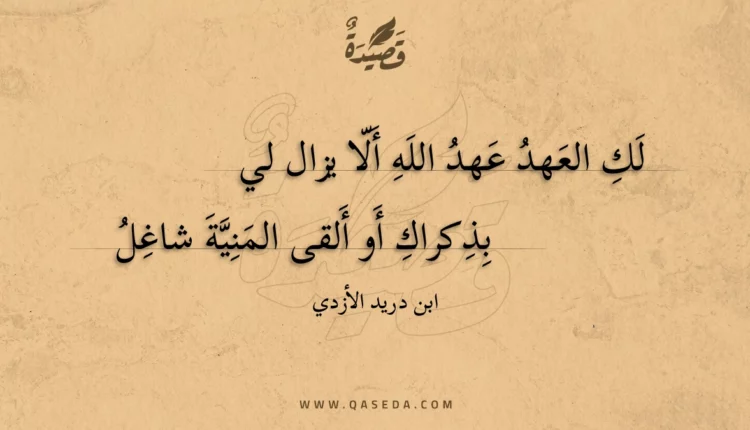 قَصِيْدَةٌ
لَكِ العَهدُ عَهدُ اللَهِ أَلّا يزال لي
بِذِكراكِ أَو أَلقى المَنِيَّةَ شاغِلُ
ابن دريد الأزدي
WWW.QASEDA.COM